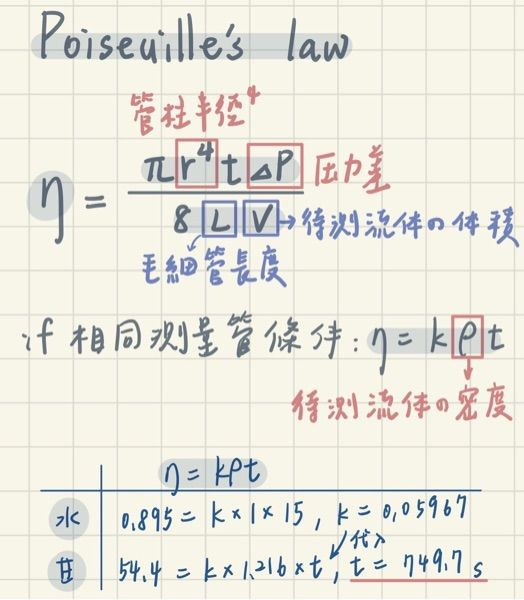 Poiseuille's law
管柱半徑⁴
η = πr⁴t△P / 8LV
压力差
→待測流体の体積
毛細管長度
if 相同測量管條件: η = kρt
待測流体の密度
η = kρt
水 0.895 = k × 1 × 15 , k = 0.05967
代入
甘 54.4 = k × 1.216 × t , t = 749.7 s